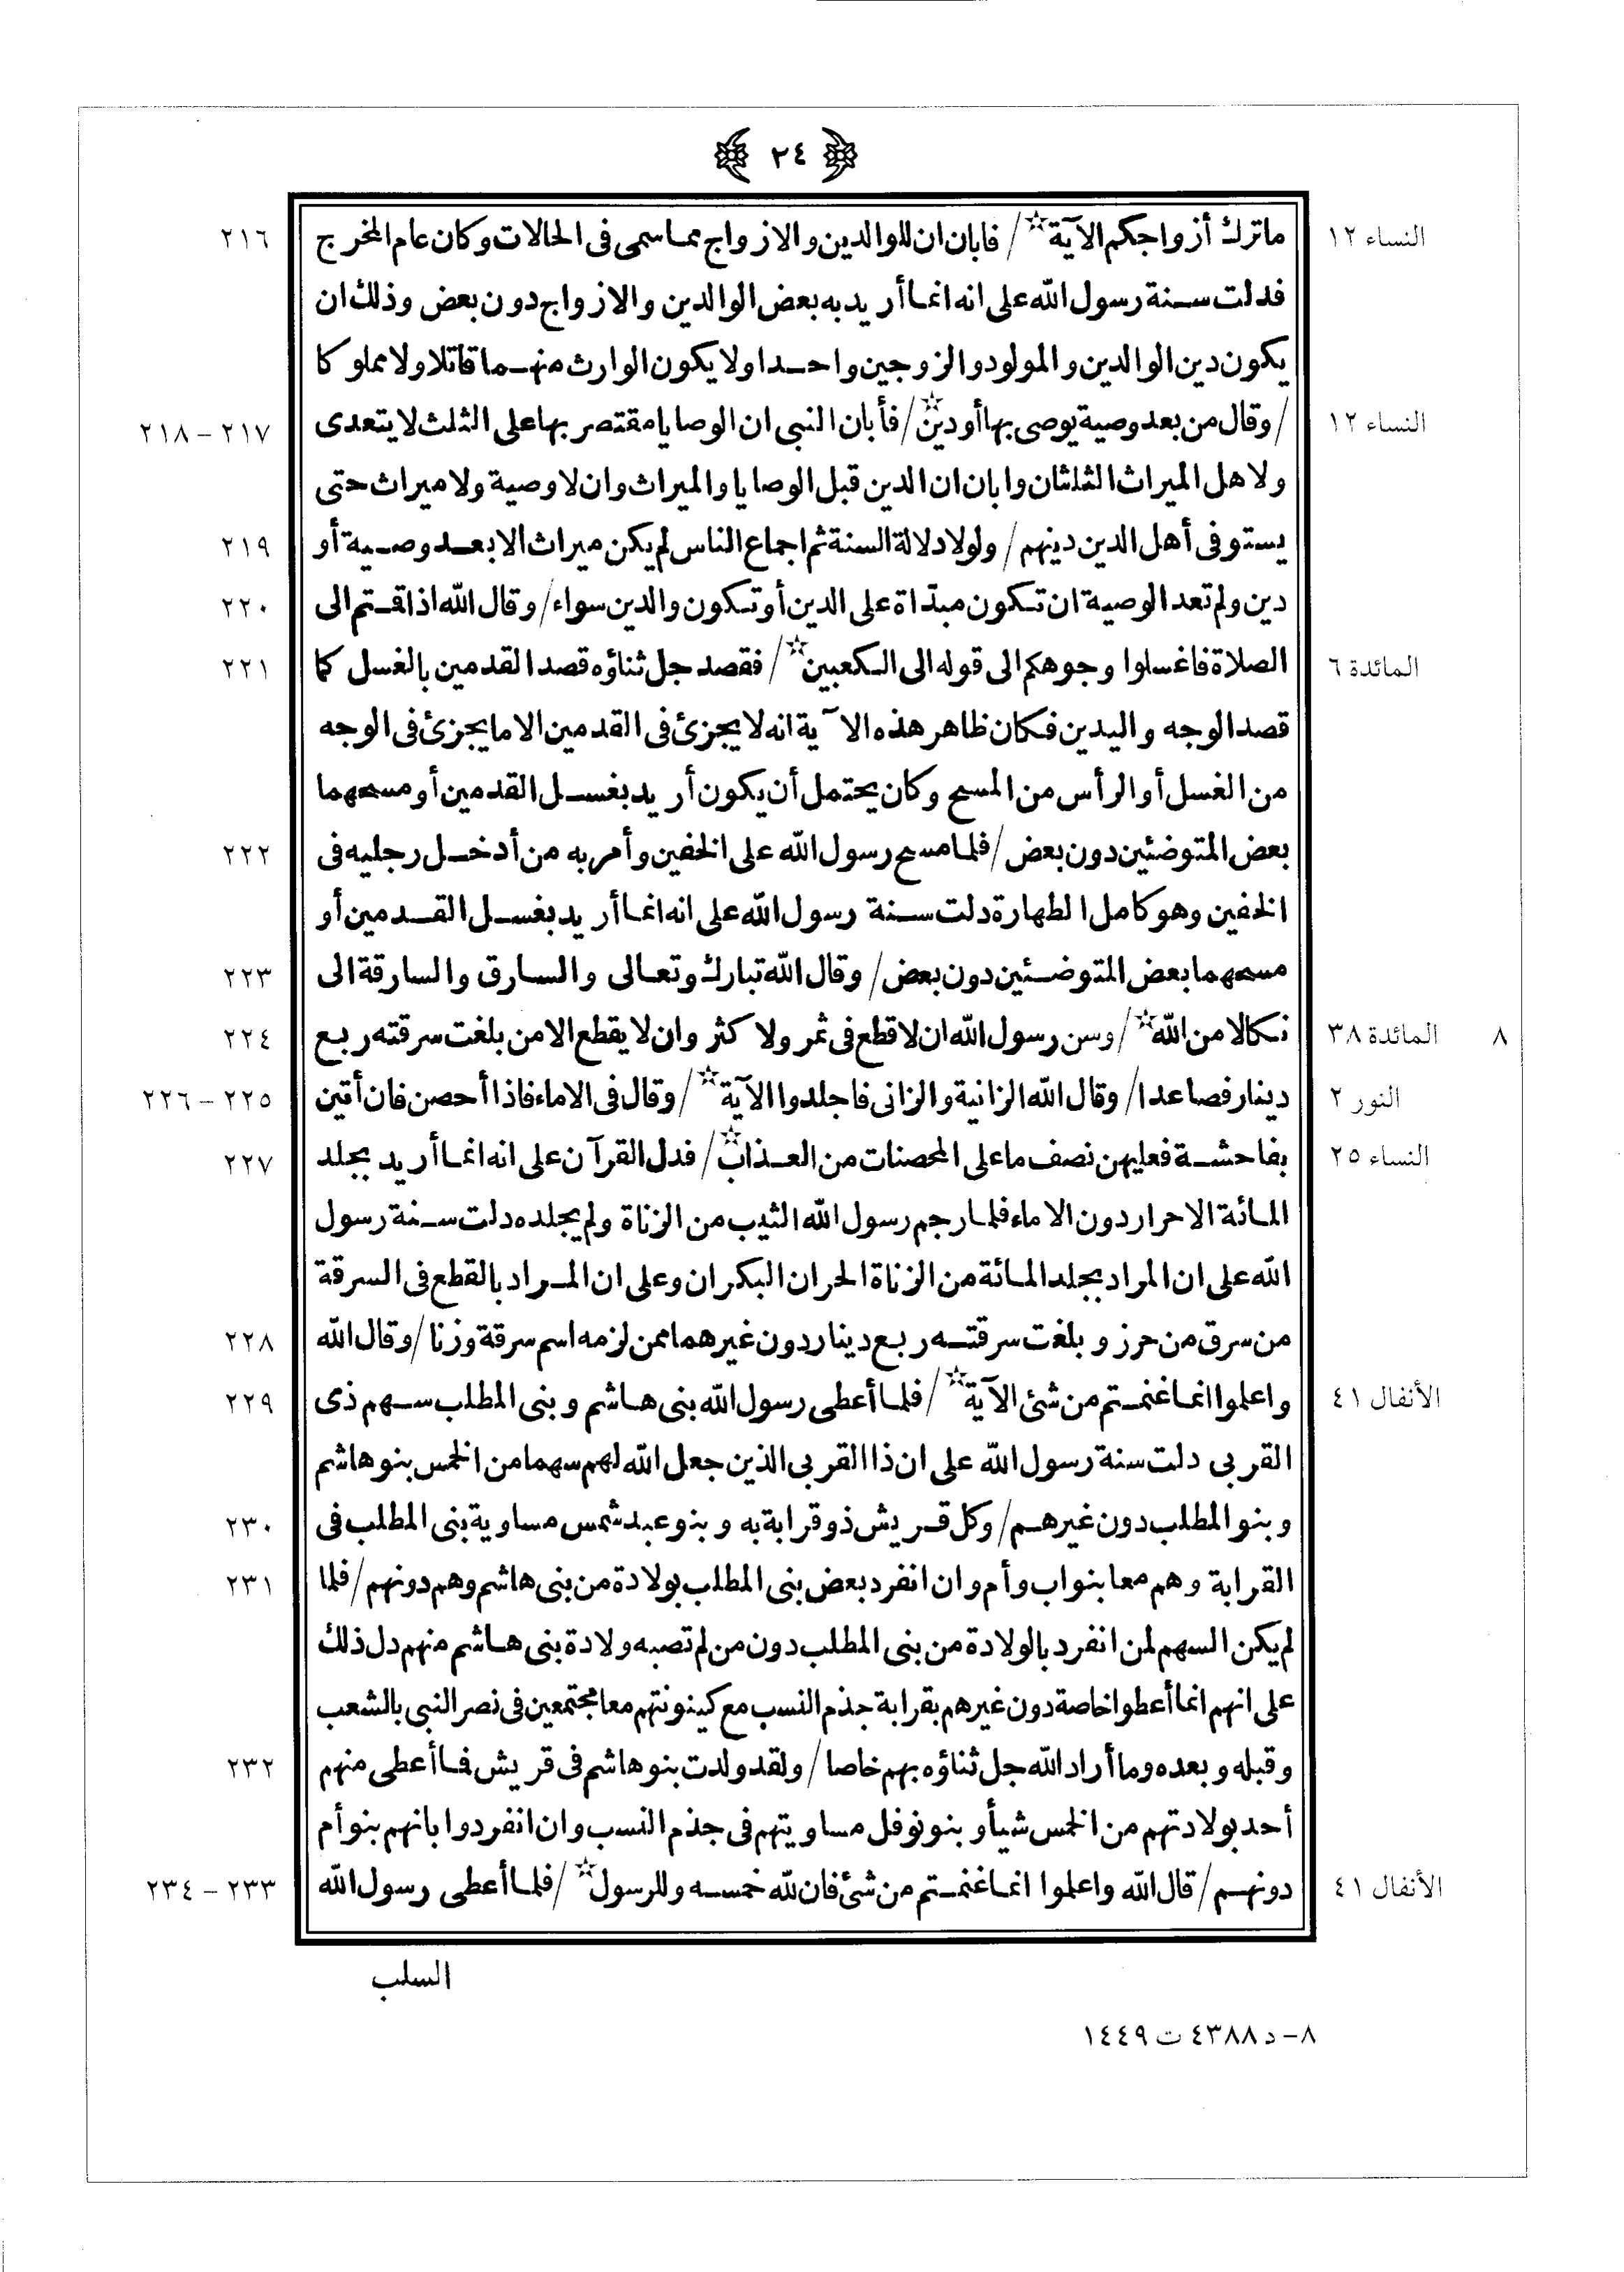 ٢٤
النساء ١٢ ماترك أزواجكم الآية☆/ فابان ان للوالدين والازواج مما سمى فى الحالات وكان عام المخرج ٢١٦
فدلت سنة رسول الله على انه انما أريد به بعض الوالدين والازواج دون بعض وذلك ان
يكون دين الوالدين والمولود والزوجين واحدا ولا يكون الوارث منهما قاتلا ولا مملوكا
النساء ١٢ /وقال من بعد وصية يوصى بها أودين☆/ فأبان النبى ان الوصايا مقتصر بها على الثلث لا يتعدى ٢١٧ – ٢١٨
ولاهل الميراث الثلثان وابان ان الدين قبل الوصايا والميراث وان لا وصية ولا ميراث حتى
يستوفى أهل الدين دينهم/ ولولا دلالة السنة ثم اجماع الناس لم يكن ميراث الا بعد وصية أو ٢١٩
دين ولم تعد الوصية ان تكون مبدّاة على الدين أو تكون والدين سواء/ وقال الله اذا قمتم الى ٢٢٠
المائدة ٦ الصلاة فاغسلوا وجوهكم الى قوله الى الكعبين☆/ فقصد جل ثناؤه قصد القدمين بالغسل كما ٢٢١
قصد الوجه واليدين فكان ظاهر هذه الآية انه لا يجزئ فى القدمين الا ما يجزئ فى الوجه
من الغسل أو الرأس من المسح وكان يحتمل أن يكون أريد بغسل القدمين أو مسحهما
بعض المتوضئين دون بعض/ فلما مسح رسول الله على الخفين وأمر به من أدخل رجليه فى ٢٢٢
الخفين وهو كامل الطهارة دلت سنة رسول الله على انه انما أريد بغسل القدمين أو
مسحهما بعض المتوضئين دون بعض/ وقال الله تبارك وتعالى والسارق والسارقة الى ٢٢٣
٨ المائدة ٣٨ نكالا من الله☆/ وسن رسول الله ان لا قطع فى ثمر ولا كثر وان لا يقطع الا من بلغت سرقته ربع ٢٢٤
النور ٢ دينار فصاعدا/ وقال الله الزانية والزانى فاجلدوا الآية☆/ وقال فى الاماء فاذا أحصن فان أتين ٢٢٥ – ٢٢٦
النساء ٢٥ بفاحشة فعليهن نصف ما على المحصنات من العذاب☆/ فدل القرآن على انه انما أريد بجلد ٢٢٧
المائة الاحرار دون الاماء فلما رجم رسول الله الثيب من الزناة ولم يجلده دلت سنة رسول
الله على ان المراد بجلد المائة من الزناة الحران البكران وعلى ان المراد بالقطع فى السرقة
من سرق من حرز وبلغت سرقته ربع دينار دون غيرهما ممن لزمه اسم سرقة وزنا/ وقال الله ٢٢٨
الأنفال ٤١ واعلموا انما غنمتم من شئ الآية☆/ فلما أعطى رسول الله بنى هاشم وبنى المطلب سهم ذى ٢٢٩
القربى دلت سنة رسول الله على ان ذا القربى الذين جعل الله لهم سهما من الخمس بنو هاشم
وبنو المطلب دون غيرهم/ وكل قريش ذو قرابة به وبنو عبد شمس مساوية بنى المطلب فى ٢٣٠
القرابة وهم معا بنو اب وأم وان انفرد بعض بنى المطلب بولادة من بنى هاشم وهم دونهم/ فلما ٢٣١
لم يكن السهم لمن انفرد بالولادة من بنى المطلب دون من لم تصبه ولادة بنى هاشم منهم دل ذلك
على انهم انما أعطوا خاصة دون غيرهم بقرابة جذم النسب مع كينونتهم معا مجتمعين فى نصر النبى بالشعب
وقبله وبعده وما أراد الله جل ثناؤه بهم خاصا/ ولقد ولدت بنو هاشم فى قريش فما أعطى منهم ٢٣٢
أحد بولادتهم من الخمس شيأ وبنو نوفل مساويتهم فى جذم النسب وان انفردوا بانهم بنو أم
الأنفال ٤١ دونهم/ قال الله واعلموا انما غنمتم من شئ فان لله خمسه وللرسول☆/ فلما أعطى رسول الله ٢٣٣ – ٢٣٤
السلب
٨– د ٤٣٨٨ ت ١٤٤٩